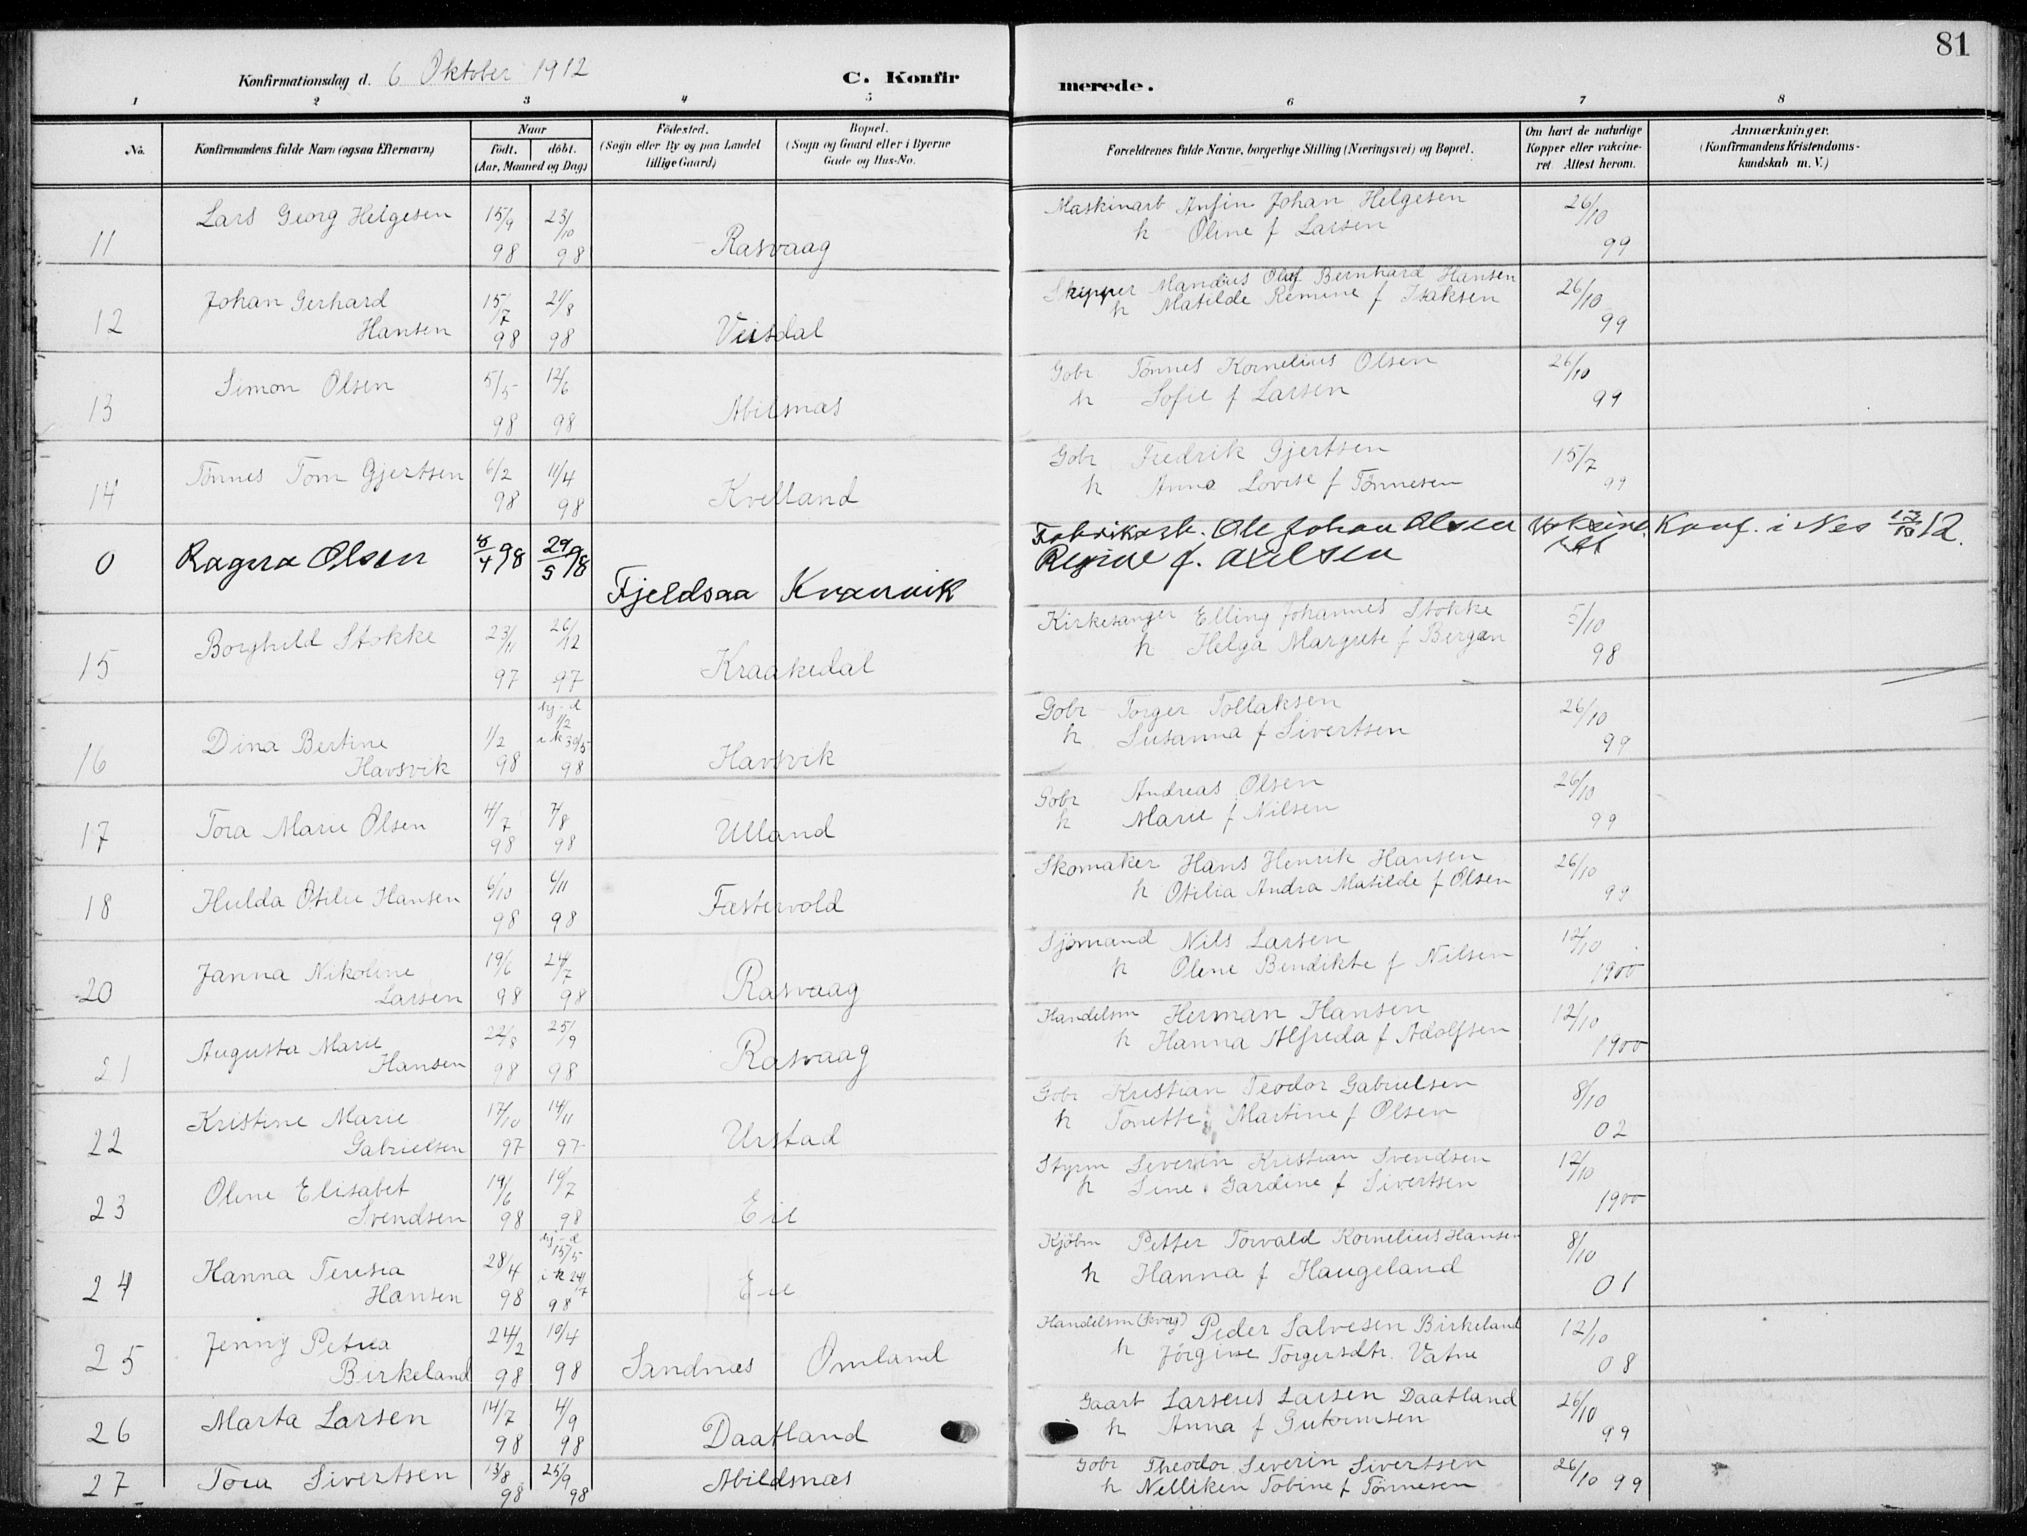 81
Konfirmationsdag d. 6 Oktober 1912 C. Konfir merede.
1 2 3 4 5 6 7 8
No. Konfirmandens fulde Navn (ogsaa Efternavn) Naar født. døbt. (Aar, Maaned og Dag) Födested. (Sogn eller By og paa Landet tillige Gaard) Bopæl. (Sogn og Gaard eller i Byerne Gade og Hus-No. Forældrenes fulde Navne, borgerlige Stilling (Næringsvei) og Bopæl. Om havt de naturlige Kopper eller vakcineret. Attest herom. Anmærkninger. (Konfirmandens Kristendomskundskab m. V.)
11 Lars Georg Helgesen 15/9 98 23/10 98 Rasvaag Maskinarb Anfin Johan Helgesen 26/10 99
h Oline f Larsen
12 Johan Gerhard 15/7 98 21/8 98 Veisdal Skipper Mandius Olaf Bernhard Hansen 26/10 99
Hansen h Matilde Remine f Isaksen
13 Simon Olsen 5/5 98 12/6 98 Abilsnæs Gobr Tønnes Kornelius Olsen 26/10 99
h Sofie f Larsen
14 Tønnes Tom Gjertsen 6/2 98 11/4 98 Kvelland Gobr Fredrik Gjertsen 15/7 99
h Anna Lovise f Tønnesen
0 Ragna Olsen 8/4 98 29/5 98 Fjeldsaa Kvanvik Fabrikarb. Ole Johan Olsen Konf. i Nes 13/10 12.
Regine f. Axelsen
15 Borghild Stokke 23/11 97 26/12 97 Kraakedal Kirkesanger Elling Johannes Stokke 5/10 98
h Helga Margrete f Bergan
16 Dina Bertine 1/2 98 hj-d 1/2 i k 30/5 98 Havsvik Gobr Torger Tollaksen 26/10 99
Havsvik h Susanna f Sivertsen
17 Tora Marie Olsen 4/7 98 7/8 98 Ulland Gobr Andreas Olsen 26/10 99
h Marie f Nilsen
18 Hulda Otilie Hansen 6/10 98 6/11 98 Fastervold Skomaker Hans Henrik Hansen 26/10 99
h Otilia Andra Matilde f Olsen
20 Janna Nikoline 19/6 98 24/7 98 Rasvaag Sjømand Nils Larsen 12/10 1900
Larsen h Oline Bendikte f Nilsen
21 Augusta Marie 22/8 98 25/9 98 Rasvaag Handelsm Herman Hansen 12/10 1900
Hansen h Hanna Alfreda f Adolfsen
22 Kristine Marie 17/10 97 14/11 97 Urstad Gobr Kristian Teodor Gabrielsen 8/10 02
Gabrielsen h Tonette Martine f Olsen
23 Oline Elisabet 19/6 98 19/7 98 Eie Styrm Severin Kristian Svendsen 12/10 1900
Svendsen h Sine Gardine f Sivertsen
24 Hanna Teresia 28/4 98 hj-d 15/5 i k 24/7 98 Eie Kjøbm Petter Torvald Kornelius Hansen 8/10 01
Hansen h Hanna f Haugeland
25 Jenny Petrea 24/2 98 10/4 98 Sandnæs Omland Handelsm Peder Salvesen Birkeland 12/10 08
Birkeland h Jørgine Torgersdtr. Vatne
26 Marta Larsen 14/7 98 4/9 98 Daatland Gaarb Larseus Larsen Daatland 26/10 99
h Anna f Gutormsen
27 Tora Sivertsen 13/8 98 25/9 98 Abildsnæs Gobr Theodor Severin Sivertsen 26/10 99
h Nelliken Tobine f Tønnesen